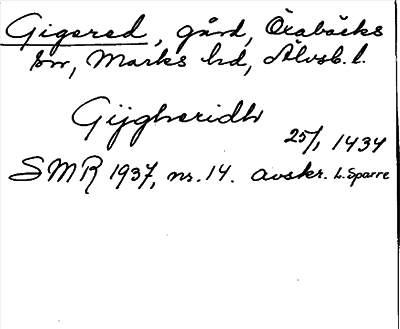 Gigered, gård, Örabäcks
sn, Marks hd, Älvsb. l.
Gijgheridh
25/1 1434
SMR 1937, nr. 14. avskr. L. Sparre